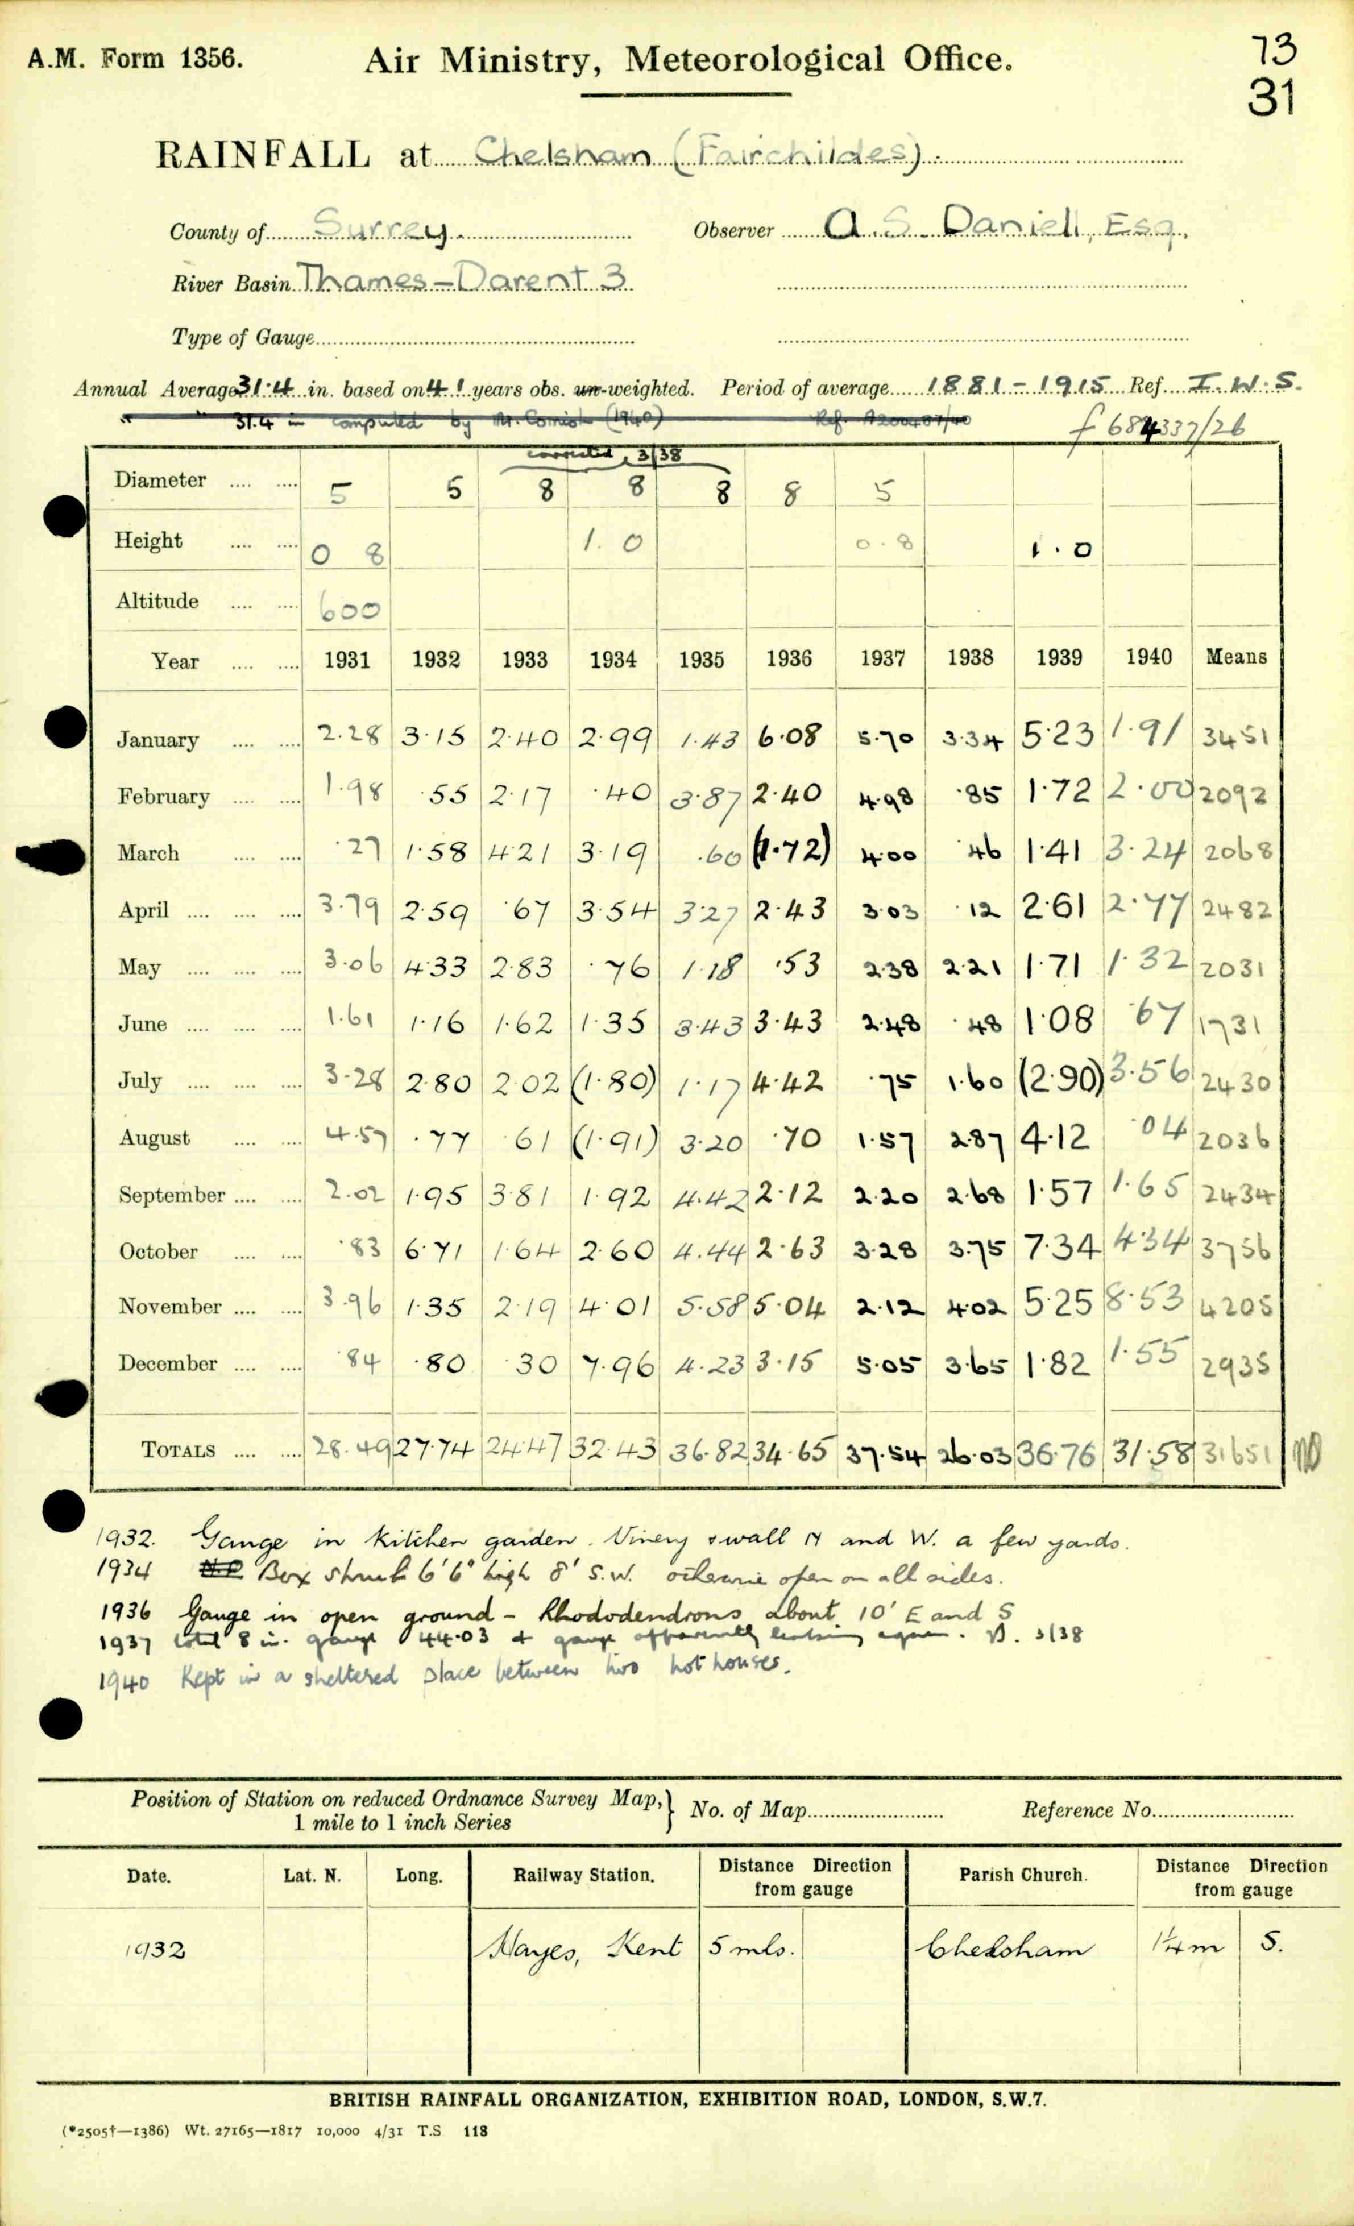 A.M. Form 1356.
Air Ministry, Meteorological Office.
73
31
RAINFALL at Chelsham (Fairchildes).
County of Surrey.
Observer A. S. Daniell, Esq.
River Basin Thames-Darent 3
Type of Gauge
Annual Average 31.4 in. based on 41 years obs. un-weighted. Period of average 1881-1915 Ref. I.W.S.
" 31.4 in computed by Mr. Cornish (1940) Ref.
f 684337/26
corrected, 3/38
Diameter 5 5 8 8 8 8 5
Height 0 8 1.0 0.8 1.0
Altitude 600
Year 1931 1932 1933 1934 1935 1936 1937 1938 1939 1940 Means
January 2.28 3.15 2.40 2.99 1.43 6.08 5.70 3.34 5.23 1.91 3451
February 1.98 .55 2.17 .40 3.87 2.40 4.98 .85 1.72 2.00 2092
March .27 1.58 4.21 3.19 .60 (1.72) 4.00 .46 1.41 3.24 2068
April 3.79 2.59 .67 3.54 3.27 2.43 3.03 .12 2.61 2.77 2482
May 3.06 4.33 2.83 .76 1.18 .53 2.38 2.21 1.71 1.32 2031
June 1.61 1.16 1.62 1.35 3.43 3.43 2.48 .48 1.08 .67 1731
July 3.28 2.80 2.02 (1.80) 1.17 4.42 .75 1.60 (2.90) 3.56 2430
August 4.57 .77 .61 (1.91) 3.20 .70 1.57 2.87 4.12 .04 2036
September 2.02 1.95 3.81 1.92 4.42 2.12 2.20 2.68 1.57 1.65 2434
October .83 6.71 1.64 2.60 4.44 2.63 3.28 3.75 7.34 4.34 3756
November 3.96 1.35 2.19 4.01 5.58 5.04 2.12 4.02 5.25 8.53 4205
December .84 .80 .30 7.96 4.23 3.15 5.05 3.65 1.82 1.55 2935
TOTALS 28.49 27.74 24.47 32.43 36.82 34.65 37.54 26.03 36.76 31.58 31651
1932. Gauge in kitchen garden. Vinery & wall N and W. a few yards.
1934 Box shrub 6'6" high 8' S.W. otherwise open on all sides.
1936 Gauge in open ground - Rhododendrons about 10' E and S
1937 total 8 in. gauge 44.03 & gauge apparently leaking again. 3/38
1940 Kept in a sheltered place between two hot houses.
Position of Station on reduced Ordnance Survey Map,
1 mile to 1 inch Series
No. of Map
Reference No.
Date. Lat. N. Long. Railway Station. Distance Direction from gauge Parish Church. Distance Direction from gauge
1932 Hayes, Kent 5 mls. Chelsham 1¼m S.
BRITISH RAINFALL ORGANIZATION, EXHIBITION ROAD, LONDON, S.W.7.
(*2505†—1386) Wt. 27165—1817 10,000 4/31 T.S 118